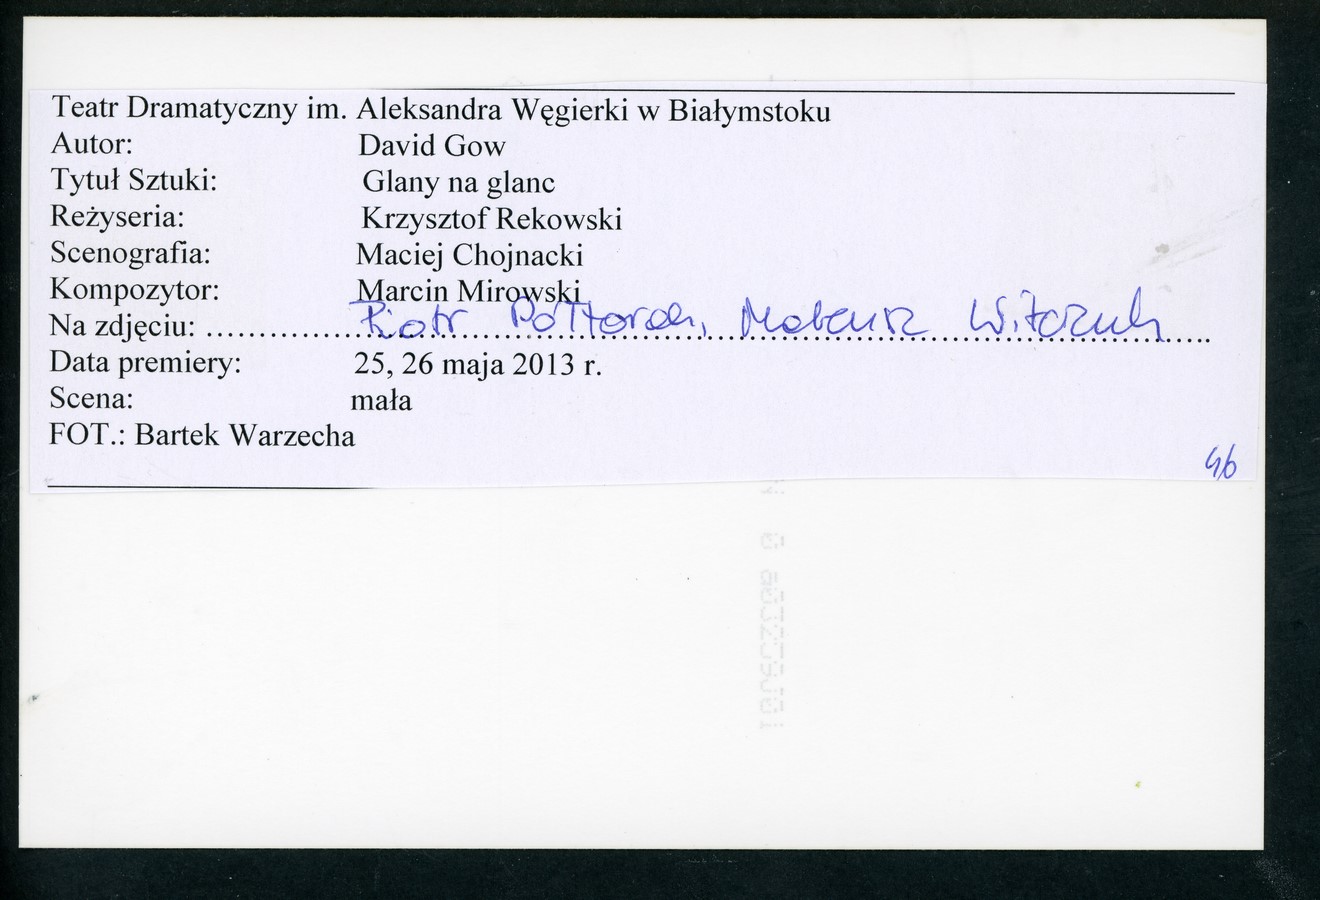 Teatr Dramatyczny im. Aleksandra Węgierki w Białymstoku
Autor: David Gow
Tytuł Sztuki: Glany na glanc
Reżyseria: Krzysztof Rekowski
Scenografia: Maciej Chojnacki
Kompozytor: Marcin Mirowski
Na zdjęciu: Piotr Półtorak, Mateusz Witczuk
Data premiery: 25, 26 maja 2013 r.
Scena: mała
FOT.: Bartek Warzecha
46